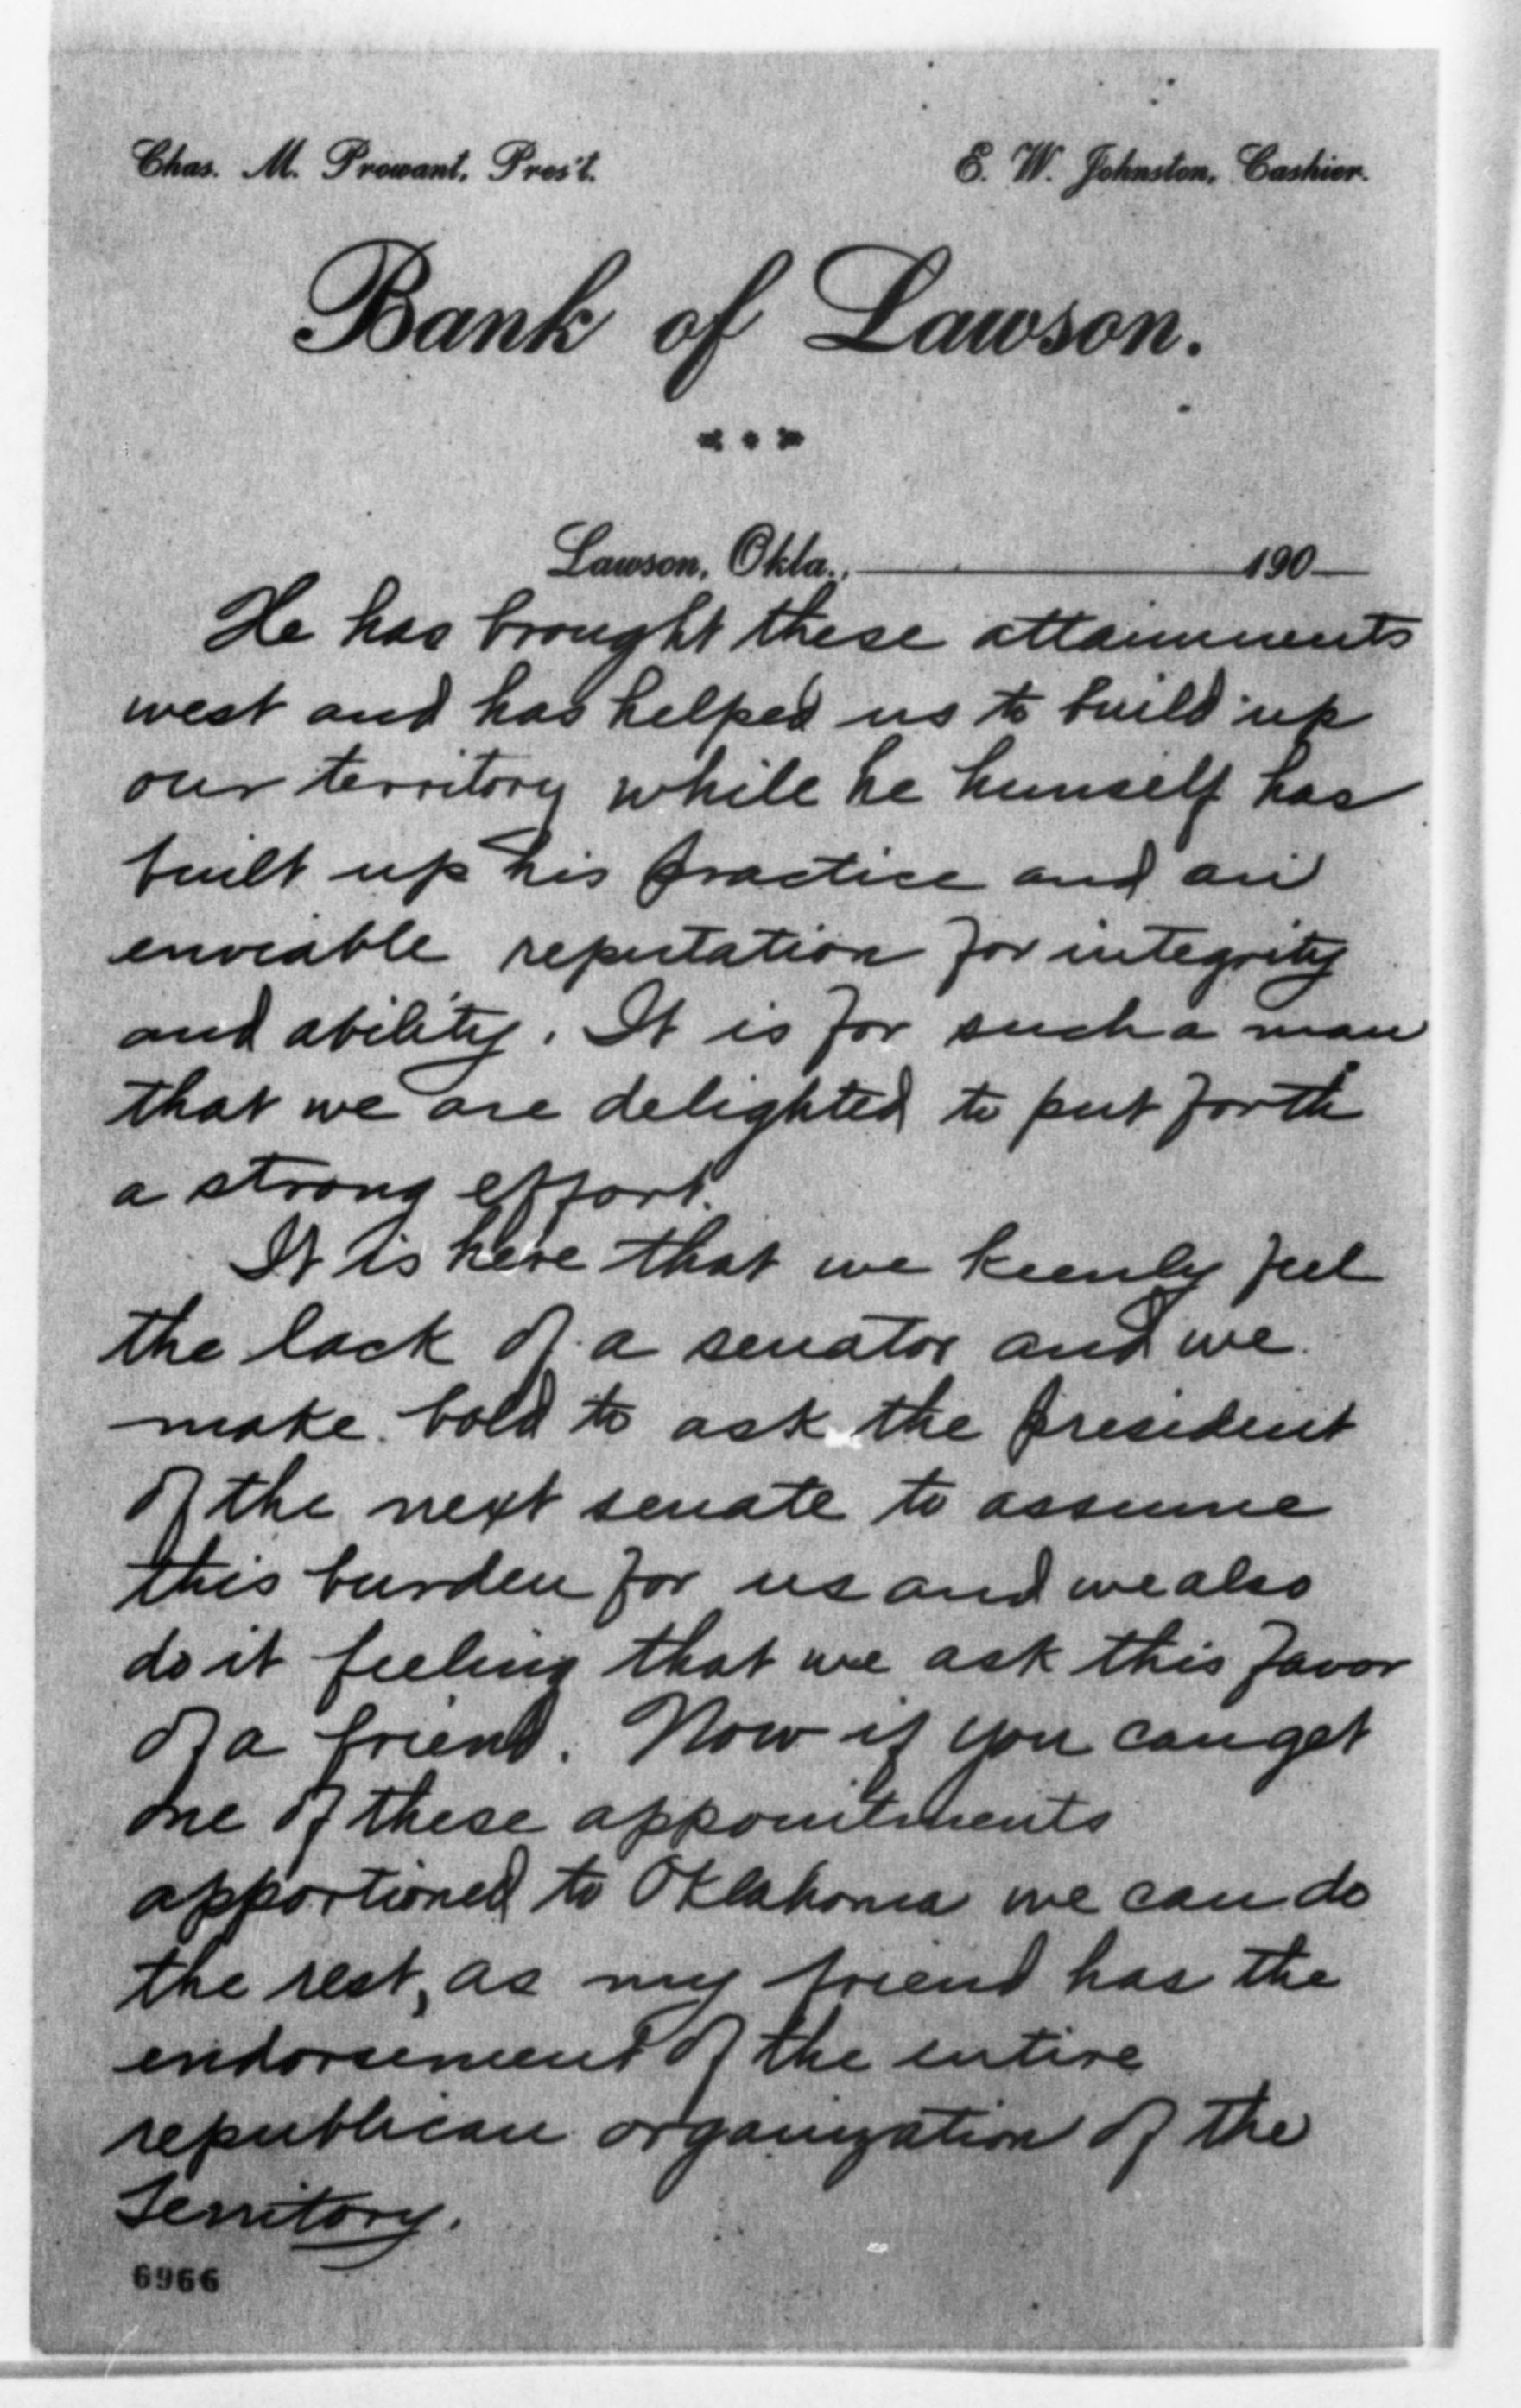 Chas. M. Prowant, Pres't. E. W. Johnston, Cashier.
Bank of Lawson.
Lawson, Okla., 190
He has brought these attainments
west and has helped us to build up
our territory while he himself has
built up his practice and an
enviable reputation for integrity
and ability. It is for such a man
that we are delighted to put forth
a strong effort.
It is here that we keenly feel
the lack of a senator and we
make bold to ask the president
of the next senate to assume
this burden for us and we also
do it feeling that we ask this favor
of a friend. Now if you can get
one of these appointments
apportioned to Oklahoma we can do
the rest, as my friend has the
endorsement of the entire
republican organization of the
Territory.
6966